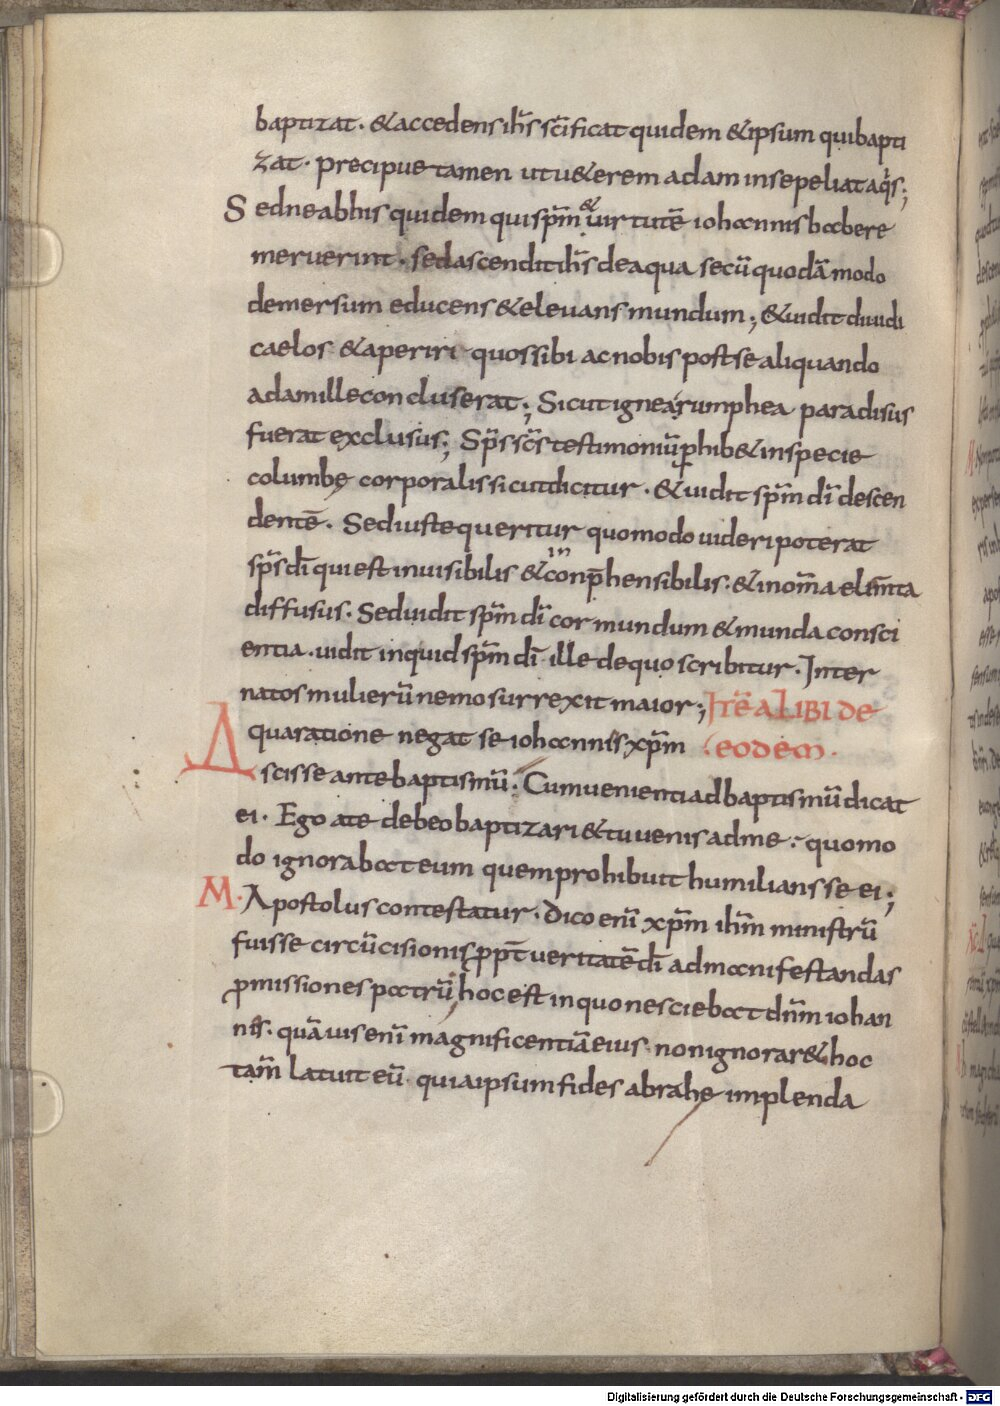 baptizat. & accedens ih̅s sc̅ificat quidem & ipsum qui bapti
zat. precipue tamen ut u&erem adam insepeliat aq̅s;
Sed ne ab his quidem qui sp̅m & uirtutē iohannis habere
meruerint. sed ascendit ih̅s de aqua secū quodā modo
demersum educens & eleuans mundum; & uidit diuidi
caelos & aperiri quos sibi ac nobis post se aliquando
adam ille concluserat; Sicut ignea rumphea paradisus
fuerat exclusus; Sp̅s sc̅s testimoniū phib& in specie
columbę corporalis sicut dicitur. & uidit sp̅m dī descen
dentē. Sed iuste queritur quomodo uideri poterat
sp̅s dī qui est inuisibilis & inconp̅hensibilis. & in om̅a elim̅ta
diffusus. Sed uidit sp̅m dī cor mundum & munda consci
entia. uidit inquid sp̅m dī ille de quo scribitur. Inter
natos mulierū nemo surrexit maior; Itē alibi de
A qua ratione negat se iohannis xp̅m eodem.
scisse ante baptismū. Cum uenienti ad baptismū dicat
ei. Ego a te debeo baptizari & tu uenis ad me. quomo
do ignorabat eum quem prohibuit humilians se ei;
M. Apostolus contestatur. dico enī xp̅m ih̅m ministrū
fuisse circūcisionis pp̅t ueritatē dī ad manifestandas
p̱missiones patrū, hoc est in quo nesciebat dn̅m iohan
nis. quā uis enī magnificentiā eius non ignorar& hoc
tam̅ latuit eū. quia ipsum fides abrahę implenda
Digitalisierung gefördert durch die Deutsche Forschungsgemeinschaft - DFG